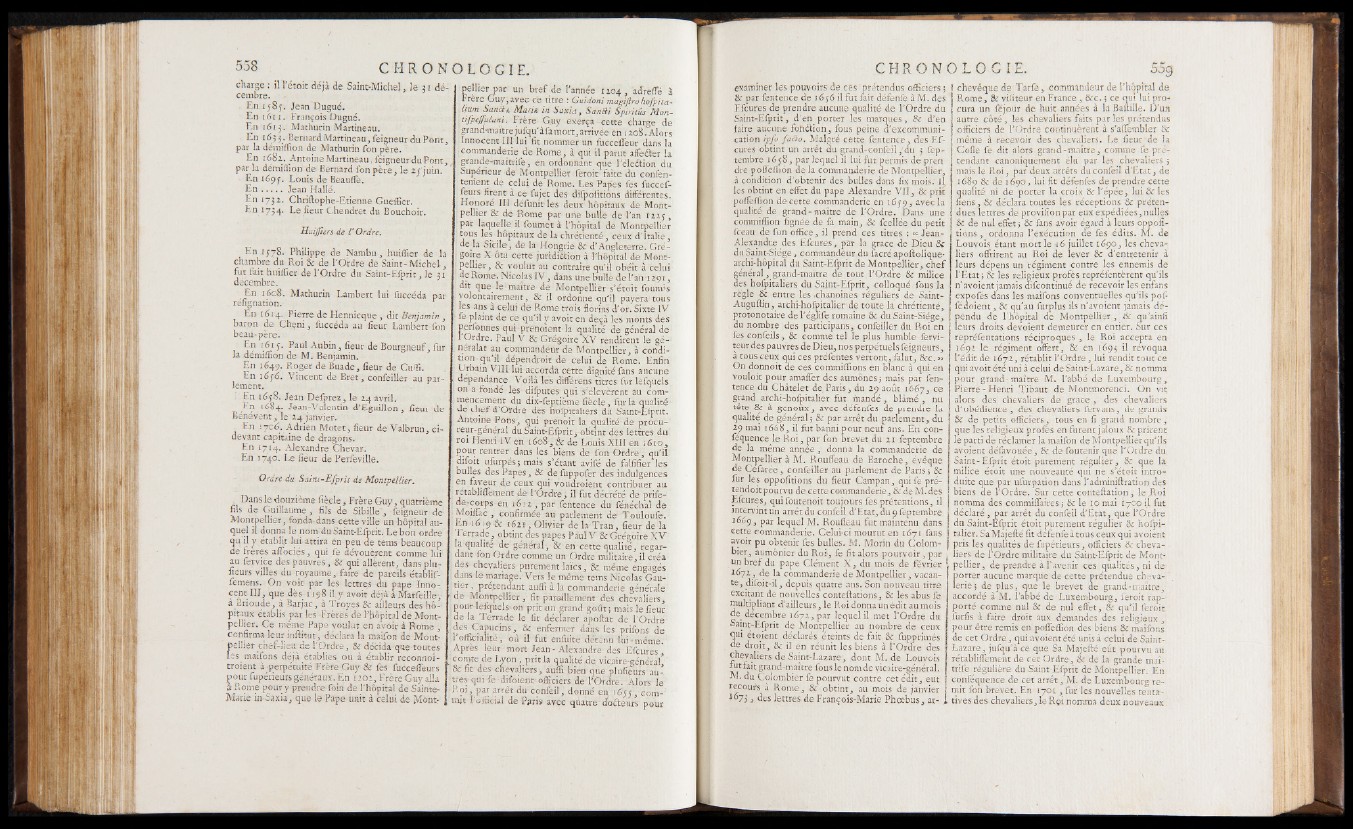 558
CHRONOLOGIE.
charge : il l'étoit déjà de Saint-Michel, le 31 dé-
cembre.
En 1585. Jean Dugué.
En 1611. François Dugué.
En 1615. Mathurin Martineau.
En 1633. Bernard Martineau, seigneur du Pont,
par la démission de Mathurin son père.
En 1682. Antoine Martineau, seigneur du Pont,
par la démission de Bernard son père, le 25 juin.
En 1695. Louis de Beausse.
En ..... Jean Hallé.
En 1732. Christophe-Etienne Gueffier.
En 1734. Le sieur Chendret du Bouchoir.
Huissiers de l'Ordre.
En 1578. Philippe de Nambu, huissier de la
chambre du Roi & de l'Ordre de Saint-Michel,
fut fait huissier de l'Ordre du Saint-Esprit, le 31
décembre.
En 1608. Mathurin Lambert lui succéda par
résignation.
En 1614. Pierre de Hennicque, dit Benjamin,
baron de Cheni, succéda au sieur Lambert son
beau-père.
En 1615. Paul Aubin, sieur de Bourgneuf, sur
la démission de M. Benjamin.
En 1649. Roger de Buade, sieur de Cussi.
En 1656. Vincent de Bret, conseiller au par-
lement.
En 1658. Jean Desprez, le 24 avril.
En 1684. Jean-Valentin d'Eguillon, sieur de
Bénévent, le 24 janvier.
En 1706. Adrien Motet, sieur de Valbrun, ci-
devant capitaine de dragons.
En 1714. Alexandre Chevar.
En 1740. Le sieur de Perseville.
Ordre du Saint-Esprit de Montpellier.
Dans le douzième siècle, Frère Guy, quatrième
fils de Guillaume, fils de Sibille, seigneur de
Montpellier, fonda dans cette ville un hôpital au-
quel il donna le nom du Saint-Esprit. Le bon ordre
qu'il y établit lui attira en peu de tems beaucoup
de frères associés, qui se dévouèrent comme lui
au service des pauvres, & qui allèrent, dans plu-
sieurs villes du royaume, faire de pareils établis-
semens. On voit par les lettres du pape Inno-
cent III, que dès 1198 il y avoit déjà à Marseille,
à Brioude, à Barjac, à Troyes & ailleurs des hô-
pitaux établis par les Frères de l'hôpital de Mont-
pellier. Ce même Pape voulut en avoir à Rome,
confirma leur institut, déclara la maison de Mont-
pellier chef-lieu de l'Ordre, & décida que toutes
les maisons déjà établies ou à établir reconnoî-
troient à perpétuité Frère Guy & ses successeurs
pour supérieurs généraux. En 1202, Frère Guy alla
à Rome pour y prendre soin de l'hôpital de Sainte-
Marie in Saxia, que le Pape unit à celui de Mont-
pellier par un bref de l'année 1204, adressé à
Frère Guy, avec ce titre : Guidoni magistro hospita-
lium Sanctæ Mariæ in Saxia, Sancti Spiritûs Mon-
tispessulani. Frère Guy exerça cette charge de
grand-maître jusqu'à sa mort, arrivée en 1208. Alors
Innocent III lui fit nommer un successeur dans la
commanderie de Rome, à qui il parut affecter la
grande-maîtrise, en ordonnant que l'élection du
Supérieur de Montpellier seroit faite du consen-
tement de celui de Rome. Les Papes ses succes-
seurs firent à ce sujet des dispositions différentes.
Honoré III désunit les deux hôpitaux de Mont-
pellier & de Rome par une bulle de l'an 1225,
par laquelle il soumet à l'hôpital de Montpellier
tous les hôpitaux de la chrétienté, ceux d'Italie,
de la Sicile, de la Hongrie & d'Angleterre. Gré-
goire X ôta cette juridiction à l'hôpital de Mont-
pellier, & voulut au contraire qu'il obéît à celui
de Rome. Nicolas IV, dans une bulle de l'an 1291,
dit que le maître de Montpellier s'étoit soumis
volontairement, & il ordonne qu'il payera tous
les ans à celui de Rome trois florins d'or. Sixte IV
se plaint de ce qu'il y avoit en deçà les monts des
personnes qui prenoient la qualité de général de
l'Ordre. Paul V & Grégoire XV rendirent le gé-
néralat au commandeur de Montpellier, à condi-
tion qu'il dépendroit de celui de Rome. Enfin
Urbain VIII lui accorda cette dignité sans aucune
dépendance. Voilà les différens titres sur lesquels
on a fondé les disputes qui s'élevèrent au com-
mencement du dix-septième siècle, sur la qualité
de chef d'Ordre des hospitaliers du Saint-Esprit.
Antoine Pons, qui prenoit la qualité de procu-
reur-général du Saint-Esprit, obtint des lettres du
roi Henri IV en 1608, & de Louis XIII en 1610,
pour rentrer dans les biens de son Ordre, qu'il
disoit usurpés ; mais s'étant avisé de falsifier les
bulles des Papes, & de supposer des indulgences
en faveur de ceux qui voudroient contribuer au
rétablissement de l'Ordre, il fut décrété de prise-
de-corps en 1612, par sentence du sénéchal de
Moissac, confirmée au parlement de Toulouse.
En 1619 & 1621, Olivier de la Tran, sieur de la
Terrade, obtint des papes Paul V & Grégoire XV
la qualité de général, & en cette qualité, regar-
dant son Ordre comme un Ordre militaire, il créa
des chevaliers purement laïcs, & même engagés
dans le mariage. Vers le même tems Nicolas Gau-
tier, prétendant aussi à la commanderie générale
de Montpellier, fit pareillement des chevaliers,
pour lesquels on prit un grand goût ; mais le sieur
de la Terrade le fit déclarer apostat de l'Ordre
des Capucins, & enfermer dans les prisons de
l'officialité, où il fut ensuite détenu lui-même.
Après leur mort Jean-Alexandre des Escures,
comte de Lyon, prit la qualité de vicaire-général,
& fit des chevaliers, aussi bien que plusieurs au-
tres qui se disoient officiers de l'Ordre. Alors le
Roi, par arrêt du conseil, donné en 1655, com-
mit l'official de Paris avec quatre docteurs pour
CHRONOLOGIE.
559
examiner les pouvoirs de ces prétendus officiers ;
& par sentence de 1656 il fut fait défense à M. des
Escures de prendre aucune qualité de l'Ordre du
Saint-Esprit, d'en porter les marques, & d'en
faire aucune fonction, sous peine d'excommuni-
cation ipso facto. Malgré cette sentence, des Es-
cures obtint un arrêt du grand-conseil, du 5 sep-
tembre 1658, par lequel il lui fut permis de pren-
dre possession de la commanderie de Montpellier,
à condition d'obtenir des bulles dans six mois. Il
les obtint en effet du pape Alexandre VII, & prit
possession de cette commanderie en 1659, avec la
qualité de grand-maître de l'Ordre. Dans une
commission signée de sa main, & scellée du petit
sceau de son office, il prend ces titres : « Jean-
Alexandre des Escures, par la grace de Dieu &
du Saint-Siège, commandeur du sacré apostolique
archi-hôpital du Saint-Esprit de Montpellier, chef
général, grand-maître de tout l'Ordre & milice
des hospitaliers du Saint-Esprit, colloqué sous la
règle & entre les chanoines réguliers de Saint-
Augustin, archi-hospitalier de toute la chrétienté,
protonotaire de l'église romaine & du Saint-Siège,
du nombre des participans, conseiller du Roi en
ses conseils, & comme tel le plus humble servi-
teur des pauvres de Dieu, nos perpétuels seigneurs,
à tous ceux qui ces présentes verront, salut, &c. »
On donnoit de ces commissions en blanc à qui en
vouloit pour amasser des aumônes ; mais par sen-
tence du Châtelet de Paris, du 29 août 1667, ce
grand archi-hospitalier fut mandé, blâmé, nu
tête & à genoux, avec défenses de prendre la
qualité de général ; & par arrêt du parlement, du
29 mai 1668, il fut banni pour neuf ans. En con-
séquence le Roi, par son brevet du 21 septembre
de la même année, donna la commanderie de
Montpellier à M. Rousseau de Baroche, évêque
de Césarée, conseiller au parlement de Paris ; &
sur les oppositions du sieur Campan, qui se pré-
tendoit pourvu de cette commanderie, & de M. des
Escures, qui soutenoit toujours ses prétentions, il
intervint un arrêt du conseil d'Etat, du 9 septembre
1669, par lequel M. Rousseau fut maintenu dans
cette commanderie. Celui-ci mourut en 1671 sans
avoir pu obtenir ses bulles. M. Morin du Colom-
bier, aumônier du Roi, se fit alors pourvoir, par
un bref du pape Clément X, du mois de février
1672, de la commanderie de Montpellier, vacan-
te, disoit-il, depuis quatre ans. Son nouveau titre
excitant de nouvelles contestations, & les abus se
multipliant d'ailleurs, le Roi donna un édit au mois
de décembre 1672, par lequel il met l'Ordre du
Saint-Esprit de Montpellier au nombre de ceux
qui étoient déclarés éteints de fait & supprimés
de droit, & il en réunit les biens à l'Ordre des
chevaliers de Saint-Lazare, dont M. de Louvois
fut fait grand-maître sous le nom de vicaire-général.
M. du Colombier se pourvut contre cet édit, eut
recours à Rome, & obtint, au mois de janvier
1673, des lettres de François-Marie Phœbus, ar-
chevêque de Tarse, commandeur de l'hôpital de
Rome, & visiteur en France, &c. ; ce qui lui pro-
cura un séjour de huit années à la Bastille. D'un
autre côté, les chevaliers faits par les prétendus
officiers de l'Ordre continuèrent à s'assembler &
même à recevoir des chevaliers. Le sieur de la
Coste se dit alors grand-maître, comme se pré-
tendant canoniquement élu par les chevaliers ;
mais le Roi, par deux arrêts du conseil d'Etat, de
1689 & de 1690, lui fit défenses de prendre cette
qualité ni de porter la croix & l'épée, lui & les
siens, & déclara toutes les réceptions & préten-
dues lettres de provision par eux expédiées, nulles
& de nul effet ; & sans avoir égard à leurs opposi-
tions, ordonna l'exécution de ses édits. M. de
Louvois étant mort le 16 juillet 1690, les cheva-
liers offrirent au Roi de lever & d'entretenir à
leurs dépens un régiment contre les ennemis de
l'Etat ; & les religieux profès représentèrent qu'ils
n'avoient jamais discontinué de recevoir les enfans
exposés dans les maisons conventuelles qu'ils pos-
sédoient, & qu'au surplus ils n'avoient jamais dé-
pendu de l'hôpital de Montpellier, & qu'ainsi
leurs droits devoient demeurer en entier. Sur ces
représentations réciproques, le Roi accepta en
1692 le régiment offert, & en 1693 il révoqua
l'édit de 1672, rétablit l'Ordre, lui rendit tout ce
qui avoit été uni à celui de Saint-Lazare, & nomma
pour grand maître M. l'abbé de Luxembourg,
Pierre-Henri Tibaut de Montmorenci. On vit
alors des chevaliers de grace, des chevaliers
d'obédience, des chevaliers servans, de grands
& de petits officiers, tous en si grand nombre,
que les religieux profès en furent jaloux & prirent
le parti de réclamer la maison de Montpellier qu'ils
avoient désavouée, & de soutenir que l'Ordre du
Saint-Esprit étoit purement régulier, & que la
milice étoit une nouveauté qui ne s'étoit intro-
duite que par usurpation dans l'administration des
biens de l'Ordre. Sur cette contestation, le Roi
nomma des commissaires ; & le 10 mai 1700 il fut
déclaré, par arrêt du conseil d'Etat, que l'Ordre
du Saint-Esprit étoit purement régulier & hospi-
talier. Sa Majesté fit défense à tous ceux qui avoient
pris les qualités de supérieurs, officiers & cheva-
liers de l'Ordre militaire du Saint-Esprit de Mont-
pellier, de prendre à l'avenir ces qualités, ni de
porter aucune marque de cette prétendue cheva-
lerie ; de plus, que le brevet de grand-maître,
accordé à M. l'abbé de Luxembourg, seroit rap-
porté comme nul & de nul effet, & qu'il seroit
sursis à faire droit aux demandes des religieux,
pour être remis en possession des biens & maisons
de cet Ordre, qui avoient été unis à celui de Saint-
Lazare, jusqu'à ce que Sa Majesté eût pourvu au
rétablissement de cet Ordre, & de la grande maî-
trise régulière du Saint Esprit de Montpellier. En
conséquence de cet arrêt, M. de Luxembourg re-
mit son brevet. En 1701, sur les nouvelles tenta-
tives des chevaliers, le Roi nomma deux nouveaux